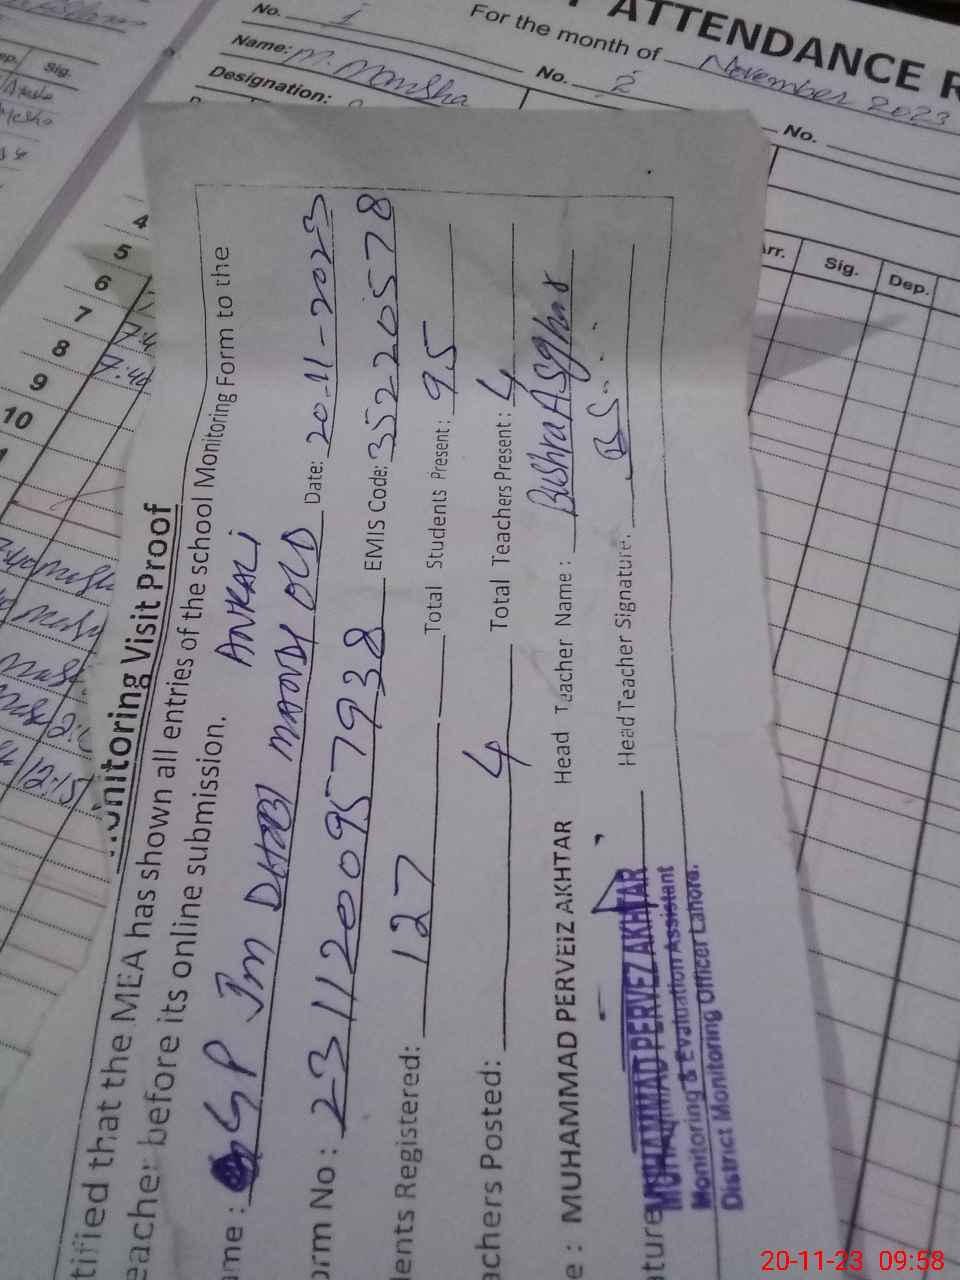 ATTENDANCE R
For the month of November 2023
No. 1
Name: M. Mansha
Designation:
No. 2
No.
Sig.
Arr. Sig. Dep.
4
5
6
7
8
9
10
12:15
Monitoring Visit Proof
tified that the MEA has shown all entries of the school Monitoring Form to the
eacher before its online submission.
ame : GP Jm DHOBI MANDI OLD ANKALI Date: 20-11-2023
orm No : 2311200957938 EMIS Code: 35220578
dents Registered: 127 Total Students Present: 95
achers Posted: 4 Total Teachers Present: 4
e : MUHAMMAD PERVEiZ AKHTAR Head Teacher Name : Bushra Asghar
ature Head Teacher Signature: BS
MUHAMMAD PERVEZ AKHTAR
Monitoring & Evaluation Assistant
District Monitoring Officer Lahore.
20-11-23 09:58